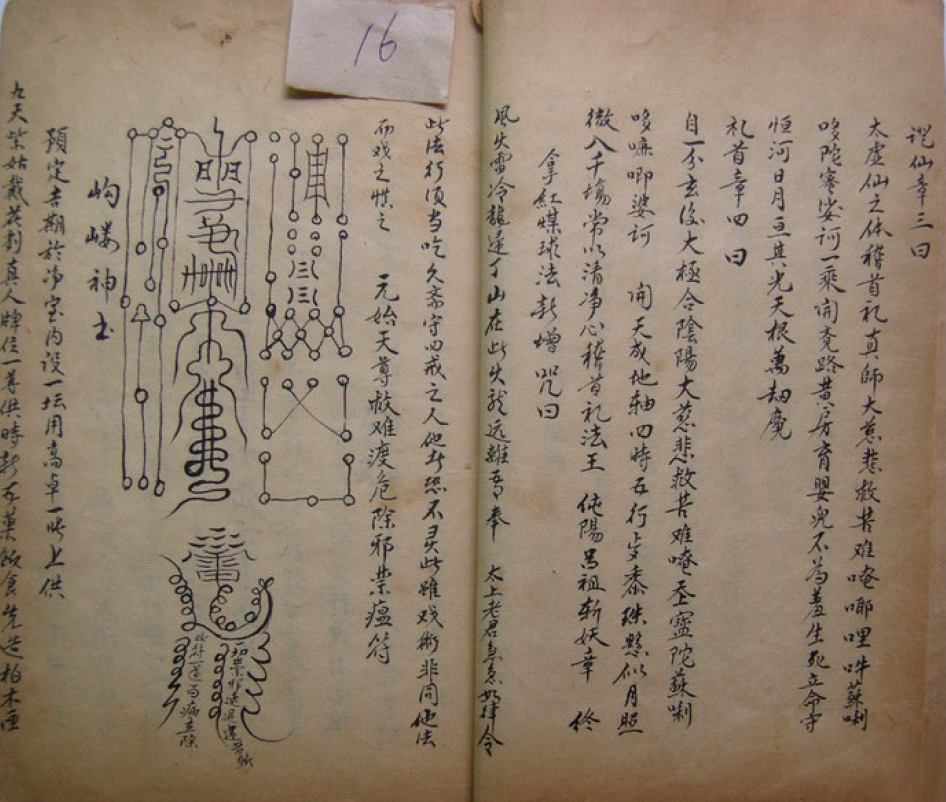 16
礼仙章三曰
太虚仙之体稽首礼真师大慈悲救苦难唵啷哩吽蘇唎
哆陀密娑诃一乘開亮路黄房育嬰兒不為羞生死立命守
恒河日月亘其光天根萬劫魔
礼首章四曰
自一分玄後大極合陰陽大慈悲救苦难唵 靈陀蘇唎
哆嘛唧婆诃 開天成地轴四時五行 黍珠懸似月照
徹八千塲常以清净心稽首礼法王 純陽吕祖斩妖章 终
拿紅媒球法新增咒曰
風火雷冷龍 山在此失 远離吾奉 太上老君急急如律令
此法行须当吃久斋守四戒之人他者恐不灵此雖戏術非同他法
而戏之慎之 元始天尊救难渡危除邪禁瘟符
此符一道百病立除
岣嶁神书
預定吉期於净室内设一坛用高桌一张上供
九天紫姑戴花 真人牌位一尊供時新五菓飯食先造柏木匣